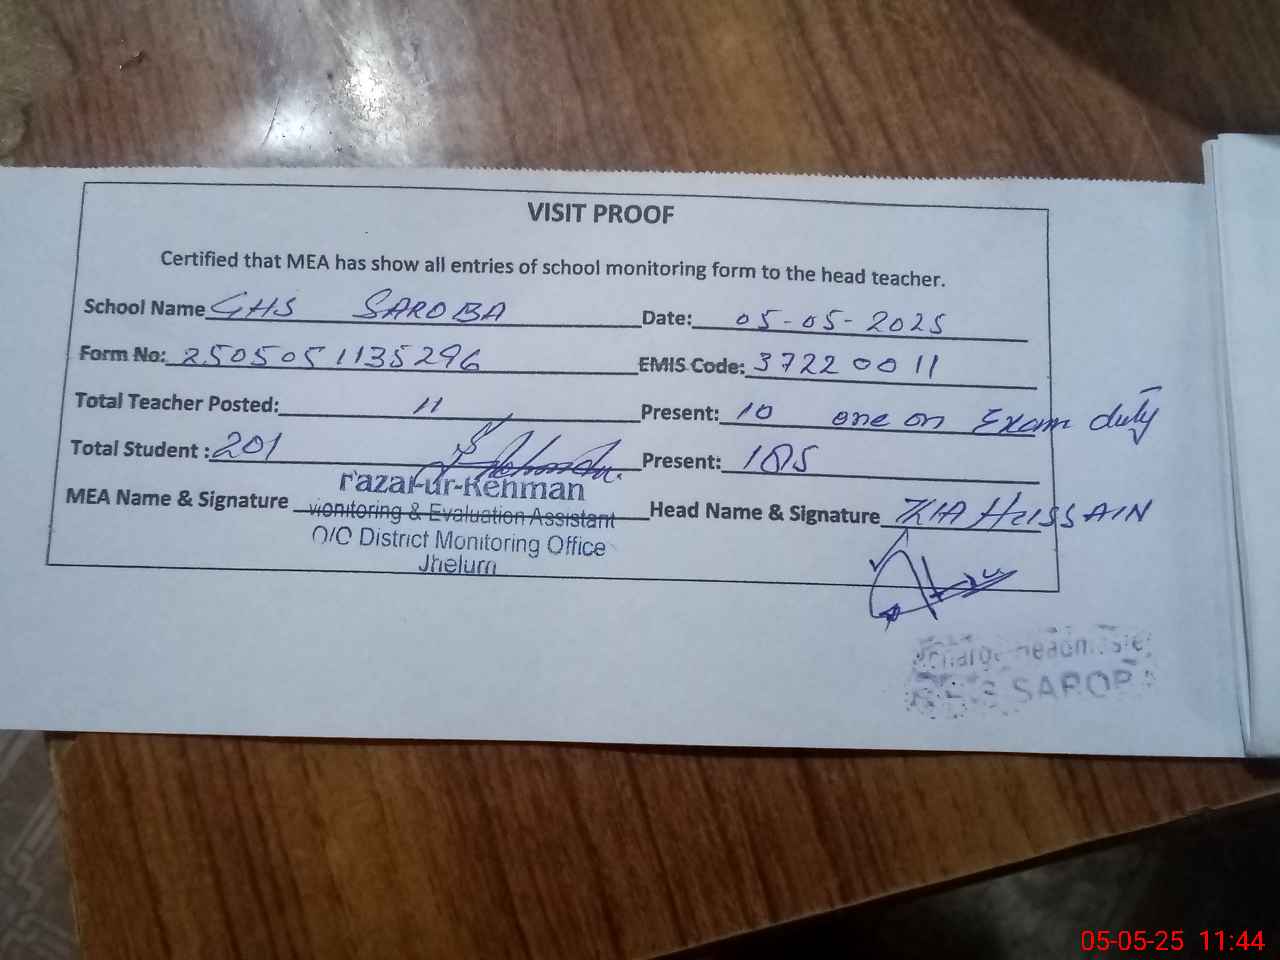 VISIT PROOF
Certified that MEA has show all entries of school monitoring form to the head teacher.
School Name GHS SAROBA Date: 05-05-2025
Form No: 2505051135296 EMIS Code: 37220011
Total Teacher Posted: 11 Present: 10 one on Exam duty
Total Student : 201 Present: 185
MEA Name & Signature Fazal-ur-Rehman Head Name & Signature ZIA HUSSAIN
Monitoring & Evaluation Assistant
O/O District Monitoring Office
Jhelum
Headmaster
SAROBA
05-05-25 11:44